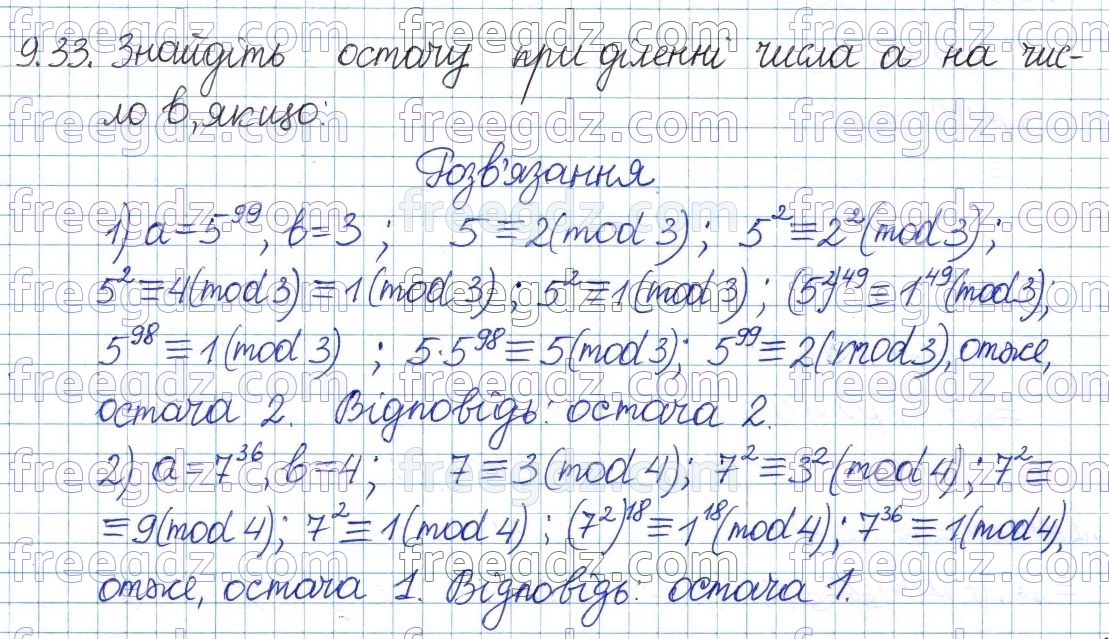 9.33. Знайдіть остачу при діленні числа a на чис-
ло b, якщо:
Розв'язання
1) a=5⁹⁹, b=3 ; 5≡2(mod 3); 5²≡2²(mod 3);
5²≡4(mod 3)≡1(mod 3); 5²≡1(mod 3); (5²)⁴⁹≡1⁴⁹(mod 3);
5⁹⁸≡1(mod 3) ; 5·5⁹⁸≡5(mod 3); 5⁹⁹≡2(mod 3), отже,
остача 2. Відповідь: остача 2.
2) a=7³⁶, b=4; 7≡3(mod 4); 7²≡3²(mod 4); 7²≡
≡9(mod 4); 7²≡1(mod 4) ; (7²)¹⁸≡1¹⁸(mod 4); 7³⁶≡1(mod 4),
отже, остача 1. Відповідь: остача 1.